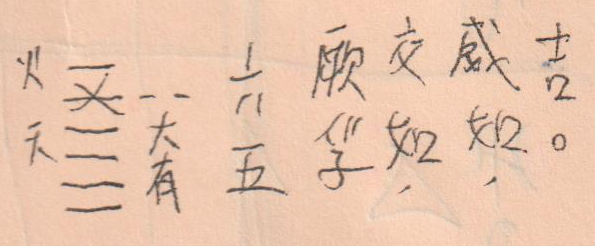 火天
大有
六五
厥孚
交如,
威如,
吉。